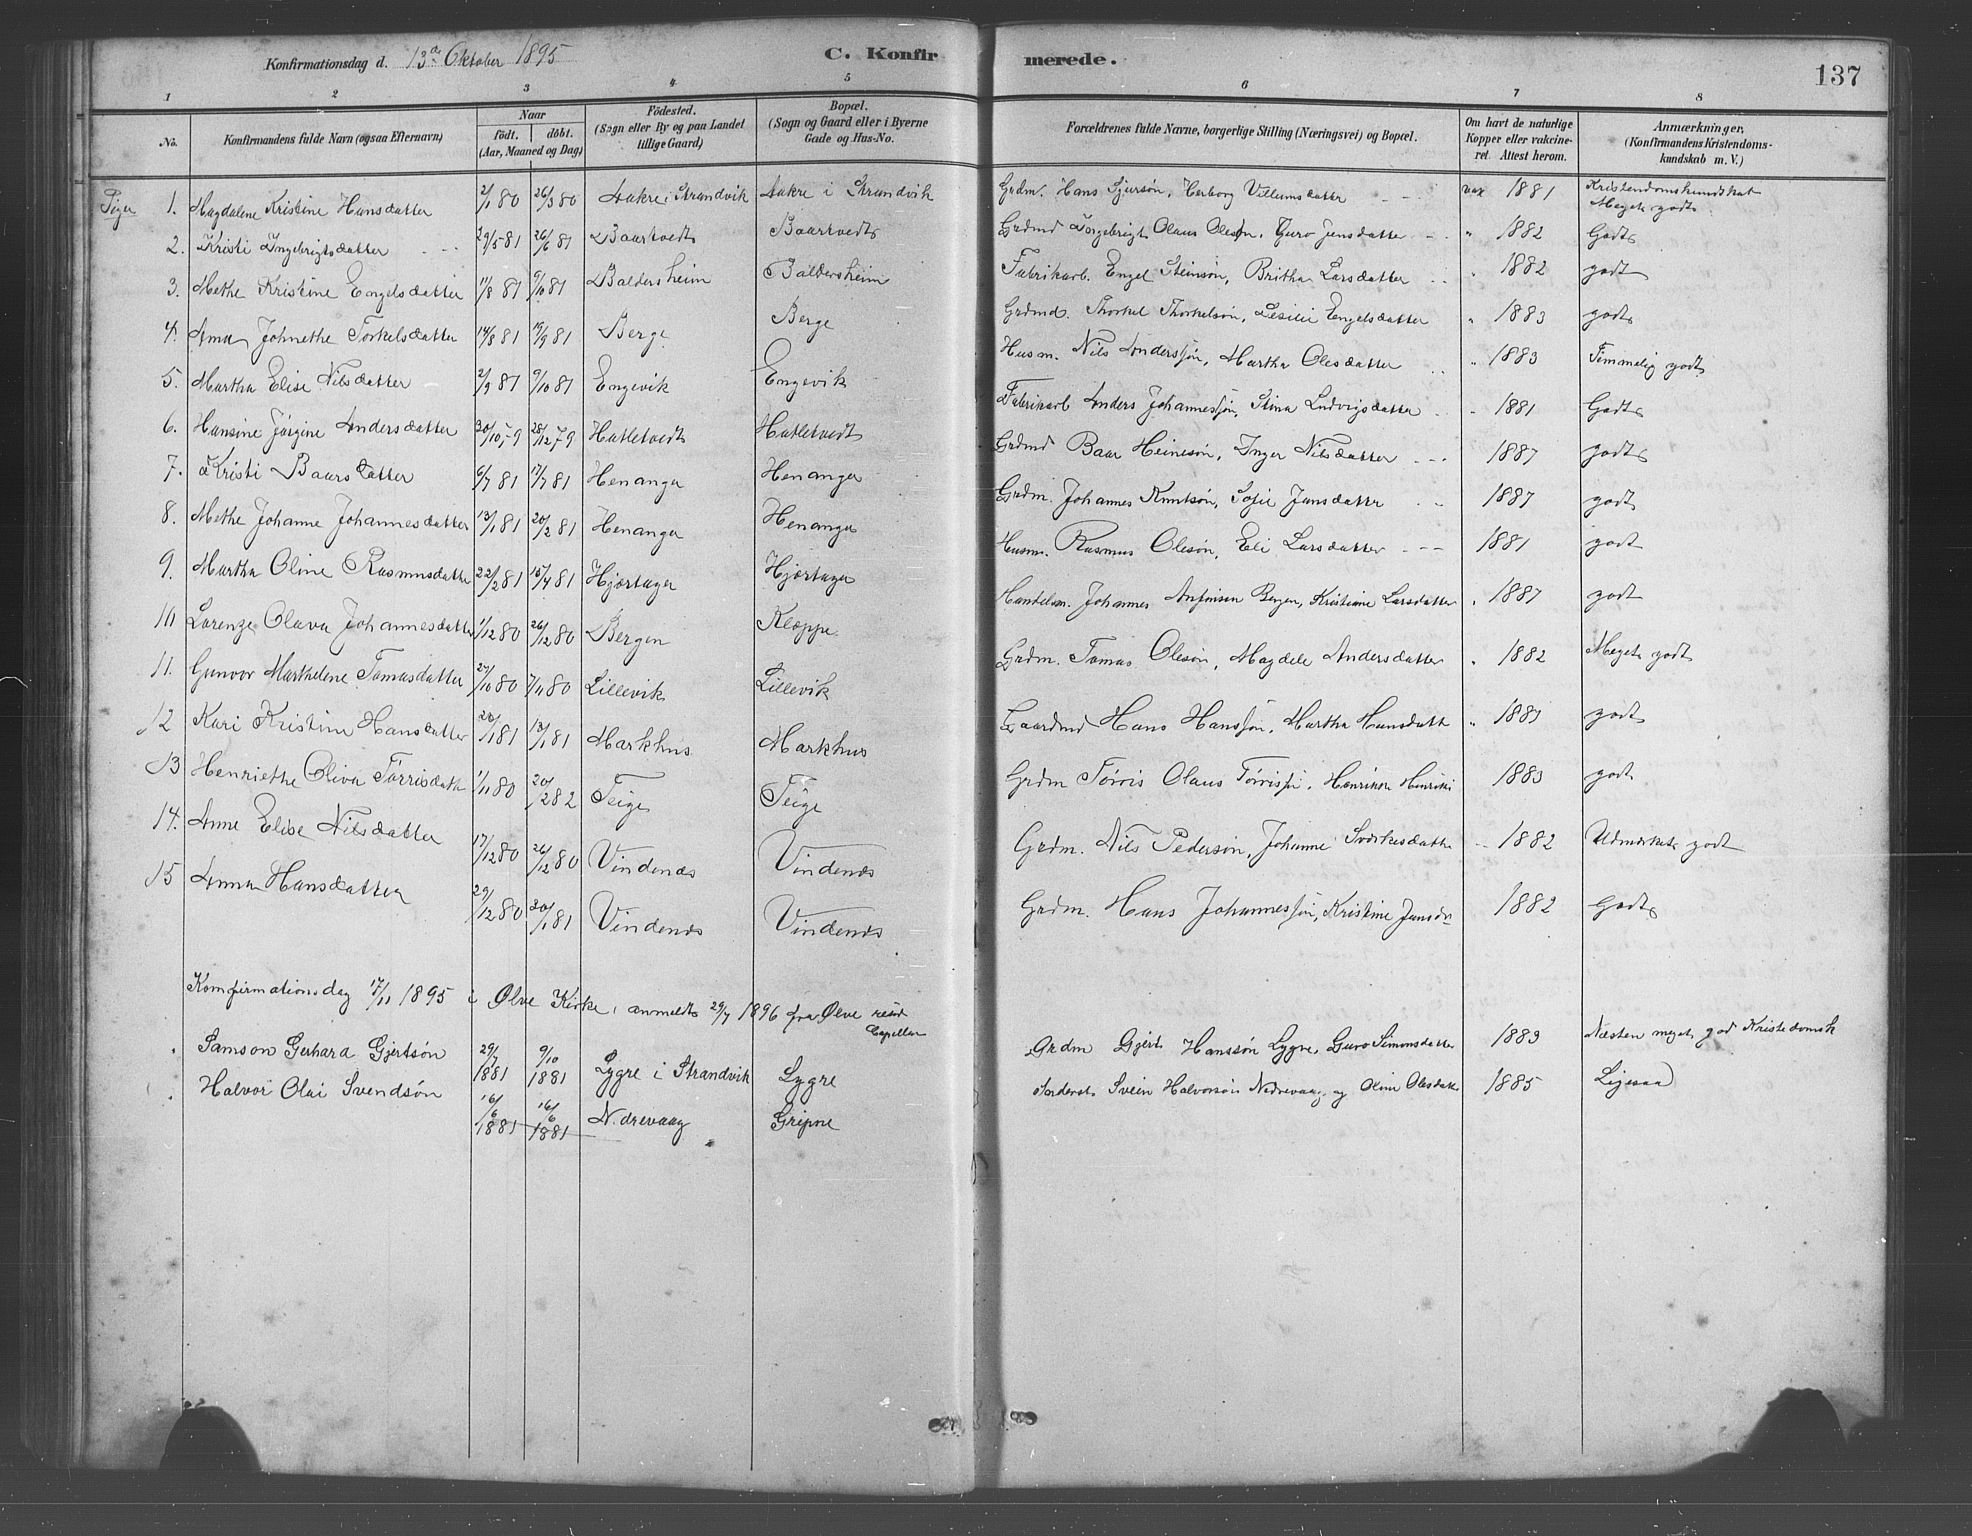 Konfirmationsdag d. 13de Oktober 1895 C. Konfirmerede. 137
1 2 3 4 5 6 7 8
No. Konfirmandens fulde Navn (ogsaa Efternavn) Naar födt. döbt. (Aar, Maaned og Dag) Födested. (Sogn eller By og paa Landet tillige Gaard) Bopæl. (Sogn og Gaard eller i Byerne Gade og Hus-No. Forældrenes fulde Navne, borgerlige Stilling (Næringsvei) og Bopæl. Om havt de naturlige Kopper eller vakcineret. Attest herom. Anmærkninger, (Konfirmandens Kristendomskundskab m. V.)
Piger 1. Magdalene Kristine Hansdatter 2/1 80 26/3 80 Aakre i Strandvik Aakre i Strandvik Grdm. Hans Sjursön, Herborg Villumsdatter vax 1881 Kristendomskundskab Meget godt
2. Kristi Ingebrigtsdatter 29/5 81 26/6 81 Baartvedt Baartvedt Grdmd Ingebrigt Olaus Olesön, Guro Jensdatter " 1882 Godt
3. Methe Kristine Engelsdatter 11/8 81 9/10 81 Baldersheim Baldersheim Fabrikarb. Engel Steinsön, Britha Larsdatter " 1882 godt
4. Anna Johnethe Torkelsdatter 14/8 81 19/9 81 Berge Berge Grdmd. Thorkel Thorkelsön, Engelsdatter " 1883 godt
5. Martha Elise Nilsdatter 2/9 81 9/10 81 Engevik Engevik Husm. Nils Anderssön, Martha Olesdatter " 1883 Temmelig godt
6. Hansine Jörgine Andersdatter 30/10 79 28/12 79 Hatletvedt Hatletvedt Fabrikarb Anders Johannessön, Stina Ludvigsdatter " 1881 Godt
7. Kristi Baarsdatter 6/7 81 17/7 81 Henanger Henanger Grdmd Baar Heinesön, Inger Nilsdatter 1887 godt
8. Methe Johanne Johannesdatter 13/1 81 20/2 81 Henanger Henanger Grdm. Johannes Knutsön, Sofie Jansdatter 1887 godt
9. Martha Oline Rasmusdatter 22/2 81 15/4 81 Hjörtager Hjörtager Husm. Rasmus Olesön, Eli Larsdatter 1881 godt
10 Lorenze Olava Johannesdatter 1/12 80 26/12 80 Bergen Kloppe Handelsm. Johannes Anfinsen Bergen, Kristiane Larsdatter " 1887 godt
11. Gunvor Marthine Tomasdatter 27/10 80 7/11 80 Lillevik Lillevik Grdm. Tomas Olesön, Magdele Andersdatter " 1882 Meget godt
12 Kari Kristine Hansdatter 1/81 13/1 81 Markhus Markhus Gaardmd Hans Hanssön, Martha Hansdatt " 1887 godt
13 Henriethe Oliva Törrisdatt 1/11 80 20/2 82 Teige Teige Grdm Törris Olaus Törrissön, Henrikke 1883 godt
14. Anne Elise Nilsdatter 17/12 80 26/12 80 Vindenes Vindenes Grdm. Nils Pedersön, Johanne Sværkesdatter 1882 Udmærket godt
15 Anna Hansdatter 29/12 80 30/1 81 Vindenes Vindenes Grdm. Hans Johannessön, Kristine Jansdr 1882 Godt
Komfirmationsdag 17/11 1895 i Ølve Kirke, anmeldt 29/7 1896 fra Ølve resid Capellan
Samson Gerhard Gjertsön 29/7 1881 9/10 1881 Lygre i Strandvik Lygre Grdm Gjert Hanssön Lygre, Guro Simonsdatter 1883 Næsten meget god Kristedomsk
Halvor Olai Svendsön 16/6 1881 16/6 1881 N. drevaag Gripne Svein Halvorsön Nedrevaag og Oline Olesdatter 1885 Ligesaa